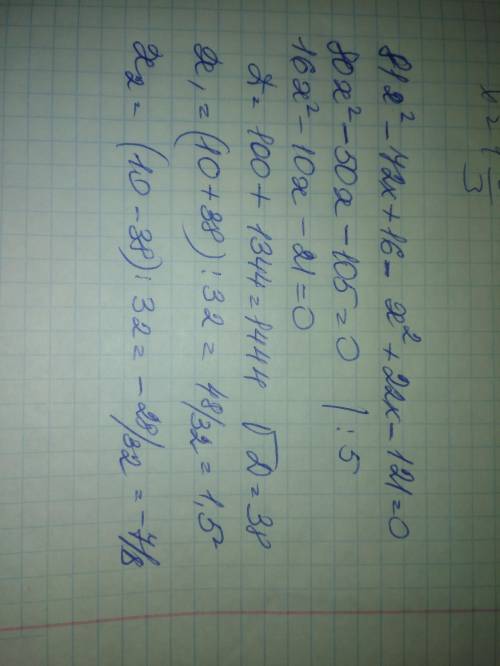 x = 1/3
81x² - 72x + 16 - x² + 22x - 121 = 0
80x² - 50x - 105 = 0 | : 5
16x² - 10x - 21 = 0
D = 100 + 1344 = 1444 √D = 38
x₁ = (10 + 38) : 32 = 48/32 = 1,5
x₂ = (10 - 38) : 32 = -28/32 = -7/8